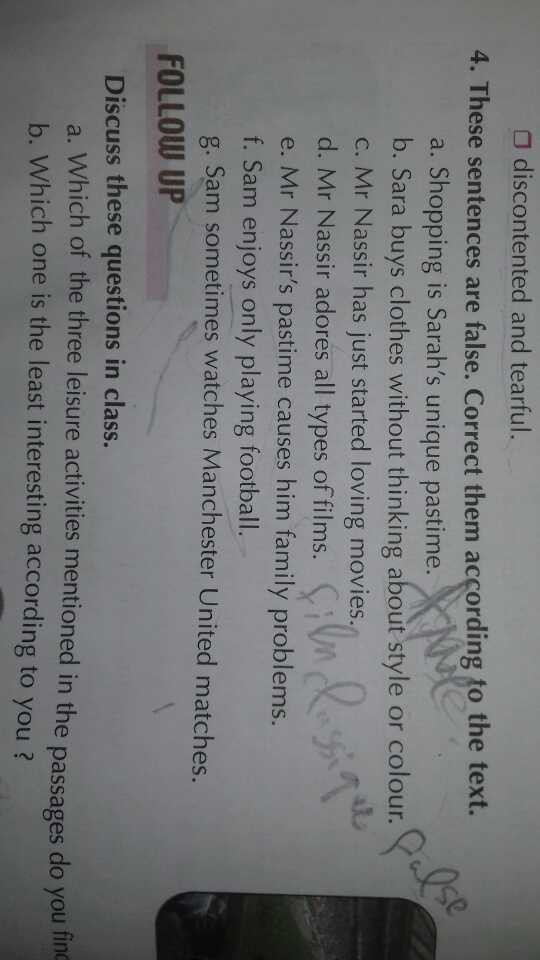 □ discontented and tearful.
4. These sentences are false. Correct them according to the text.
a. Shopping is Sarah's unique pastime.
b. Sara buys clothes without thinking about style or colour. false
c. Mr Nassir has just started loving movies.
d. Mr Nassir adores all types of films. film classique
e. Mr Nassir's pastime causes him family problems.
f. Sam enjoys only playing football.
g. Sam sometimes watches Manchester United matches.
FOLLOW UP
Discuss these questions in class.
a. Which of the three leisure activities mentioned in the passages do you find
b. Which one is the least interesting according to you ?